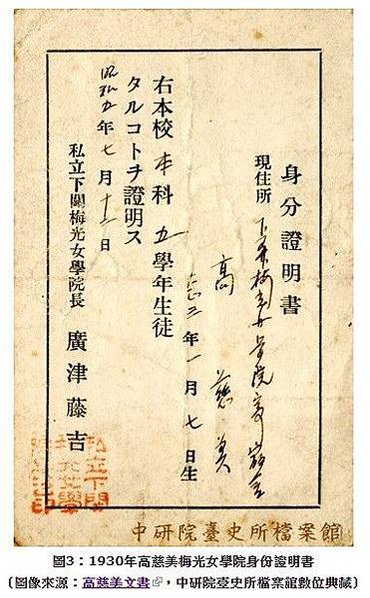 身分證明書
現住所 下関梅光女学院
高 慈美
三年一月七日生
右本校本科五學年生徒
タルコトヲ證明ス
昭和五年七月十二日
私立下關梅光女學院長 廣津藤吉
私立下関
女學
中研院臺史所檔案館
圖3：1930年高慈美梅光女學院身份證明書
〔圖像來源：高慈美文書，中研院臺史所檔案館數位典藏〕